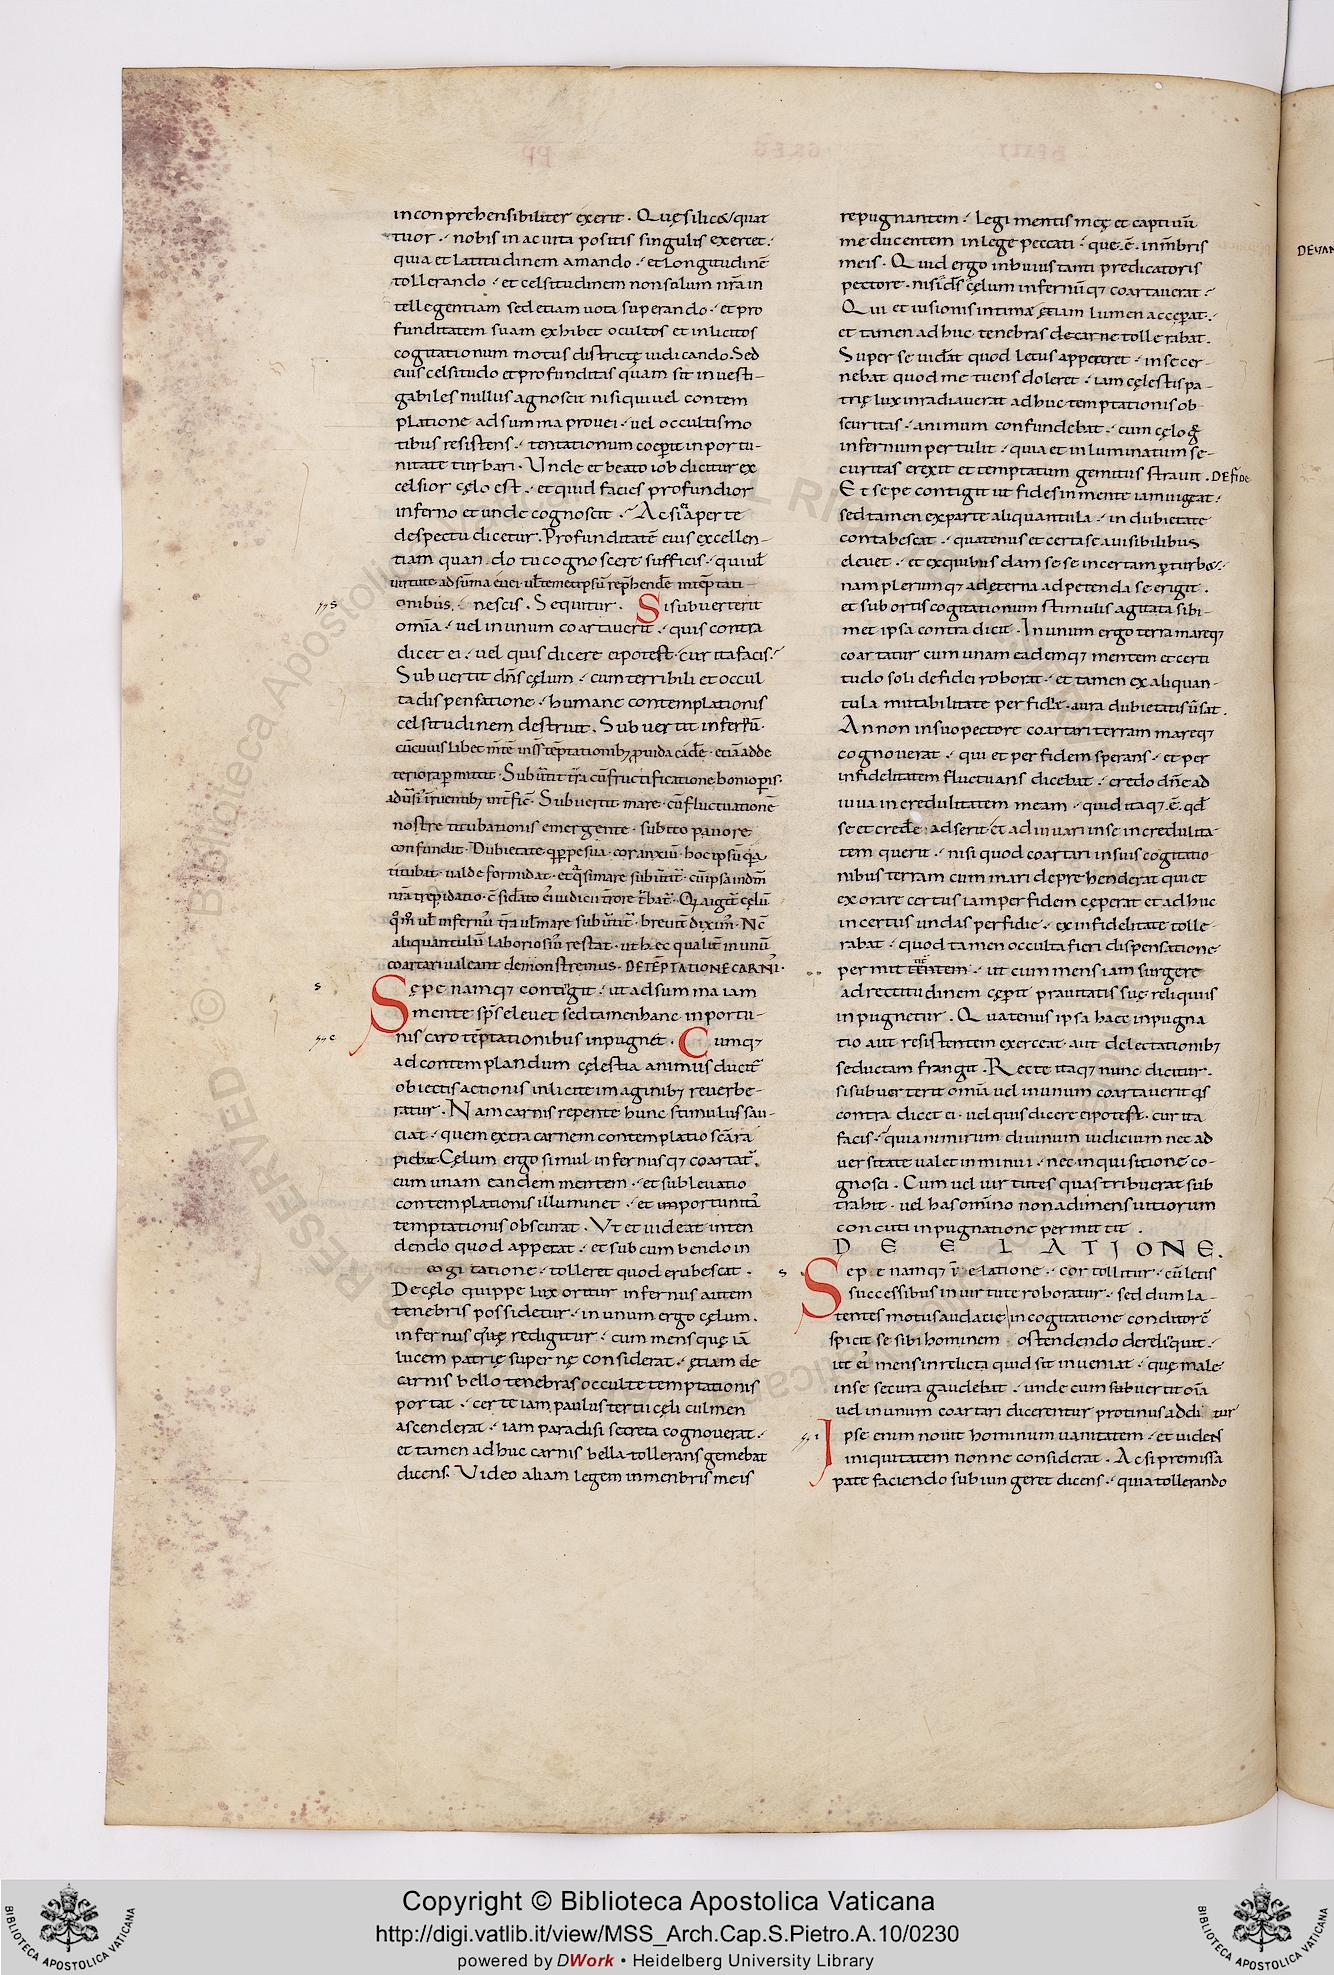 inconprehensibiliter exerit. Quę silicet quat
tuor. nobis in ac uita positis singulis exercet.
quia et latitudinem amando. et longitudinē
tollerando. et celsitudinem non solum nr̄a in
tellegentiam sed etiam uota superando. et pro
funditatem suam exhibet ocultos et inlicitos
cogitationum motus districtę iudicando. Sed
eius celsitudo et profunditas quam sit inuesti-
gabiles nullus agnoscit nisi qui uel contem
platione ad summa prouei. uel occultis mo
tibus resistens. tentationum coeperit inportu-
nitate turbari. Unde et beato iob dicitur ex
celsior cęlo est. et quid facies profundior
inferno et unde cognoscit. Ac si aperte
despectu dicetur. Profunditatē eius excellen-
tiam quan do tu cognoscere sufficis. qui uł
onibus. nescis. Sequitur. Si subuerterit
omīa. uel in unum coartauerit. quis contra
dicet ei. uel quis dicere ei potest. cur ita facis.
Subuertit dn̄s cęlum. cum terribili et occul
ta dispensatione. humane contemplationis
celsitudinem destruit. Subuertit infernū.
nostre titubationis emergente. subito pauore
confundit. Dubietate
coartari ualeant demonstremus. DE TĒPTATIONE CARNĪ.
s
Sępe namq; contigit. ut ad summa iam
mente sp̄s eleuet sed tamen hanc inportu-
nis caro tēptationibus inpugnet. Cumq;
ad contemplandum cęlestia animus ducit̄
obiectis actionis inlicite imaginib; reuerbe-
ratur. Nam carnis repente hunc stimulus sau-
ciat. quem extra carnem contemplatio scāra
piebat. Cęlum ergo simul infernusq; coartat̄.
cum unam eandem mentem. et subleuatio
contemplationis illuminet. et importunita
temptationis obscurat. Ut et uideat inten
dendo quod appetat. et subcumbendo in
cogitatione. tolleret quod erubescat.
De cęlo quippe lux oritur infernus autem
tenebris possidetur. in unum ergo cęlum.
infernusq̄uę redigitur. cum mens quę iā
lucem patrię supernę considerat. ętiam de
carnis bello tenebras occulte temptationis
portat. certe iam paulus tertii cęli culmen
ascenderat. iam paradisi secreta cognouerat.
et tamen adhuc carnis bella tollerans gemebat
dicens. Uideo aliam legem in menbris meis
repugnantem. legi mentis męę et captiuū
me ducentem in lege peccati. que. ē. in mm̄bris
meis. Quid ergo in huius tanti predicatoris
pectore. nisi ds̄ cęlum infernūq; coartauerat.
Qui et uisionis intimæ ętiam lumen accęperat.
et tamen adhuc tenebras de carne tollerabat.
Super se uiderat quod letus appeteret. in se cer-
nebat quod metuens doleret. iam cęlestis pa-
trię lux inradiauerat adhuc temptationis ob-
scuritas. animum confundebat. cum cęlo
infernum pertulit. quia et inluminatum se-
curitas erexit et temptatum gemitus strauit. DE FIDE
Et sepe contigit ut fides in mente iam uigeat.
sed tamen ex parte aliquantula. in dubietate
contabescat. quatenus et certa se a uisibilibus
leuet. et ex quibusdam se se incertam perturbet.
nam plerumq; ad ęterna adpetenda se erigit.
et sub ortis cogitationum stimulis agitata sibi-
met ipsa contra dicit. In unum ergo terra mareq;
coartatur cum unam eademq; mentem et certi
tudo soli de fidei roborat. et tamen ex aliquan-
tula mutabilitate perfidiæ. aura dubietatis
An non in suo pectore coartari terram mareq;
cognouerat. qui et per fidem sperans. et per
infidelitatem fluctuans dicebat. credo dn̄e ad
iuua incredulitatem meam. quid itaq;. ē. qd̄
se et credere adserit et adiuuari in se incredulita-
tem querit. nisi quod coartari in suis cogitatio
nibus terram cum mari deprehenderat qui et
exorare certus iam per fidem cęperat et adhuc
incertus undas perfidie. ex infidelitate tolle-
rabat. quod tamen occulta fieri dispensatione
permittentem. ut cum mens iam surgere
ad rectitudinem cęperit prauitatis suę reliquiis
inpugnetur. Quatenus ipsa hace inpugna
tio aut resistentem exerceat. aut delectationib;
seductam frangit. Recte itaq; nunc dicitur.
si subuerterit omīa uel in unum coartauerit qs
contra dicet ei. uel quis dicere ei potest. cur ita
facis. quia nimirum diuinum iudicium nec ad
uersitate ualet inminui. nec inquisitione co-
gnosci. Cum uel uirtutes quas tribuerat sub
trahit. uel has omīno non adimens uitiorum
concuti inpugnatione permittit.
DE ELATIONE.
s
Sepe namq; elatione. cor tollitur. cū letis
successibus in uirtute roboratur. sed dum la-
tentes motus audacie in cogitatione conditor ē
spicit se sibi hominem ostendendo derelīquit.
ut ei mens in relicta quid sit inueniat. quę male
in se secura gaudebat. unde cum subuertit oīa
uel in unum coartari dicerentur protinus addi tur
Ipse enim nouit hominum uanitatem. et uidens
iniquitatem nonne considerat. Ac si premissa
patefaciendo subiungeret dicens. quia tollerando
Copyright © Biblioteca Apostolica Vaticana
http://digi.vatlib.it/view/MSS_Arch.Cap.S.Pietro.A.10/0230
powered by DWork • Heidelberg University Library
BIBLIOTECA APOSTOLICA VATICANA
BIBLIOTECA APOSTOLICA VATICANA